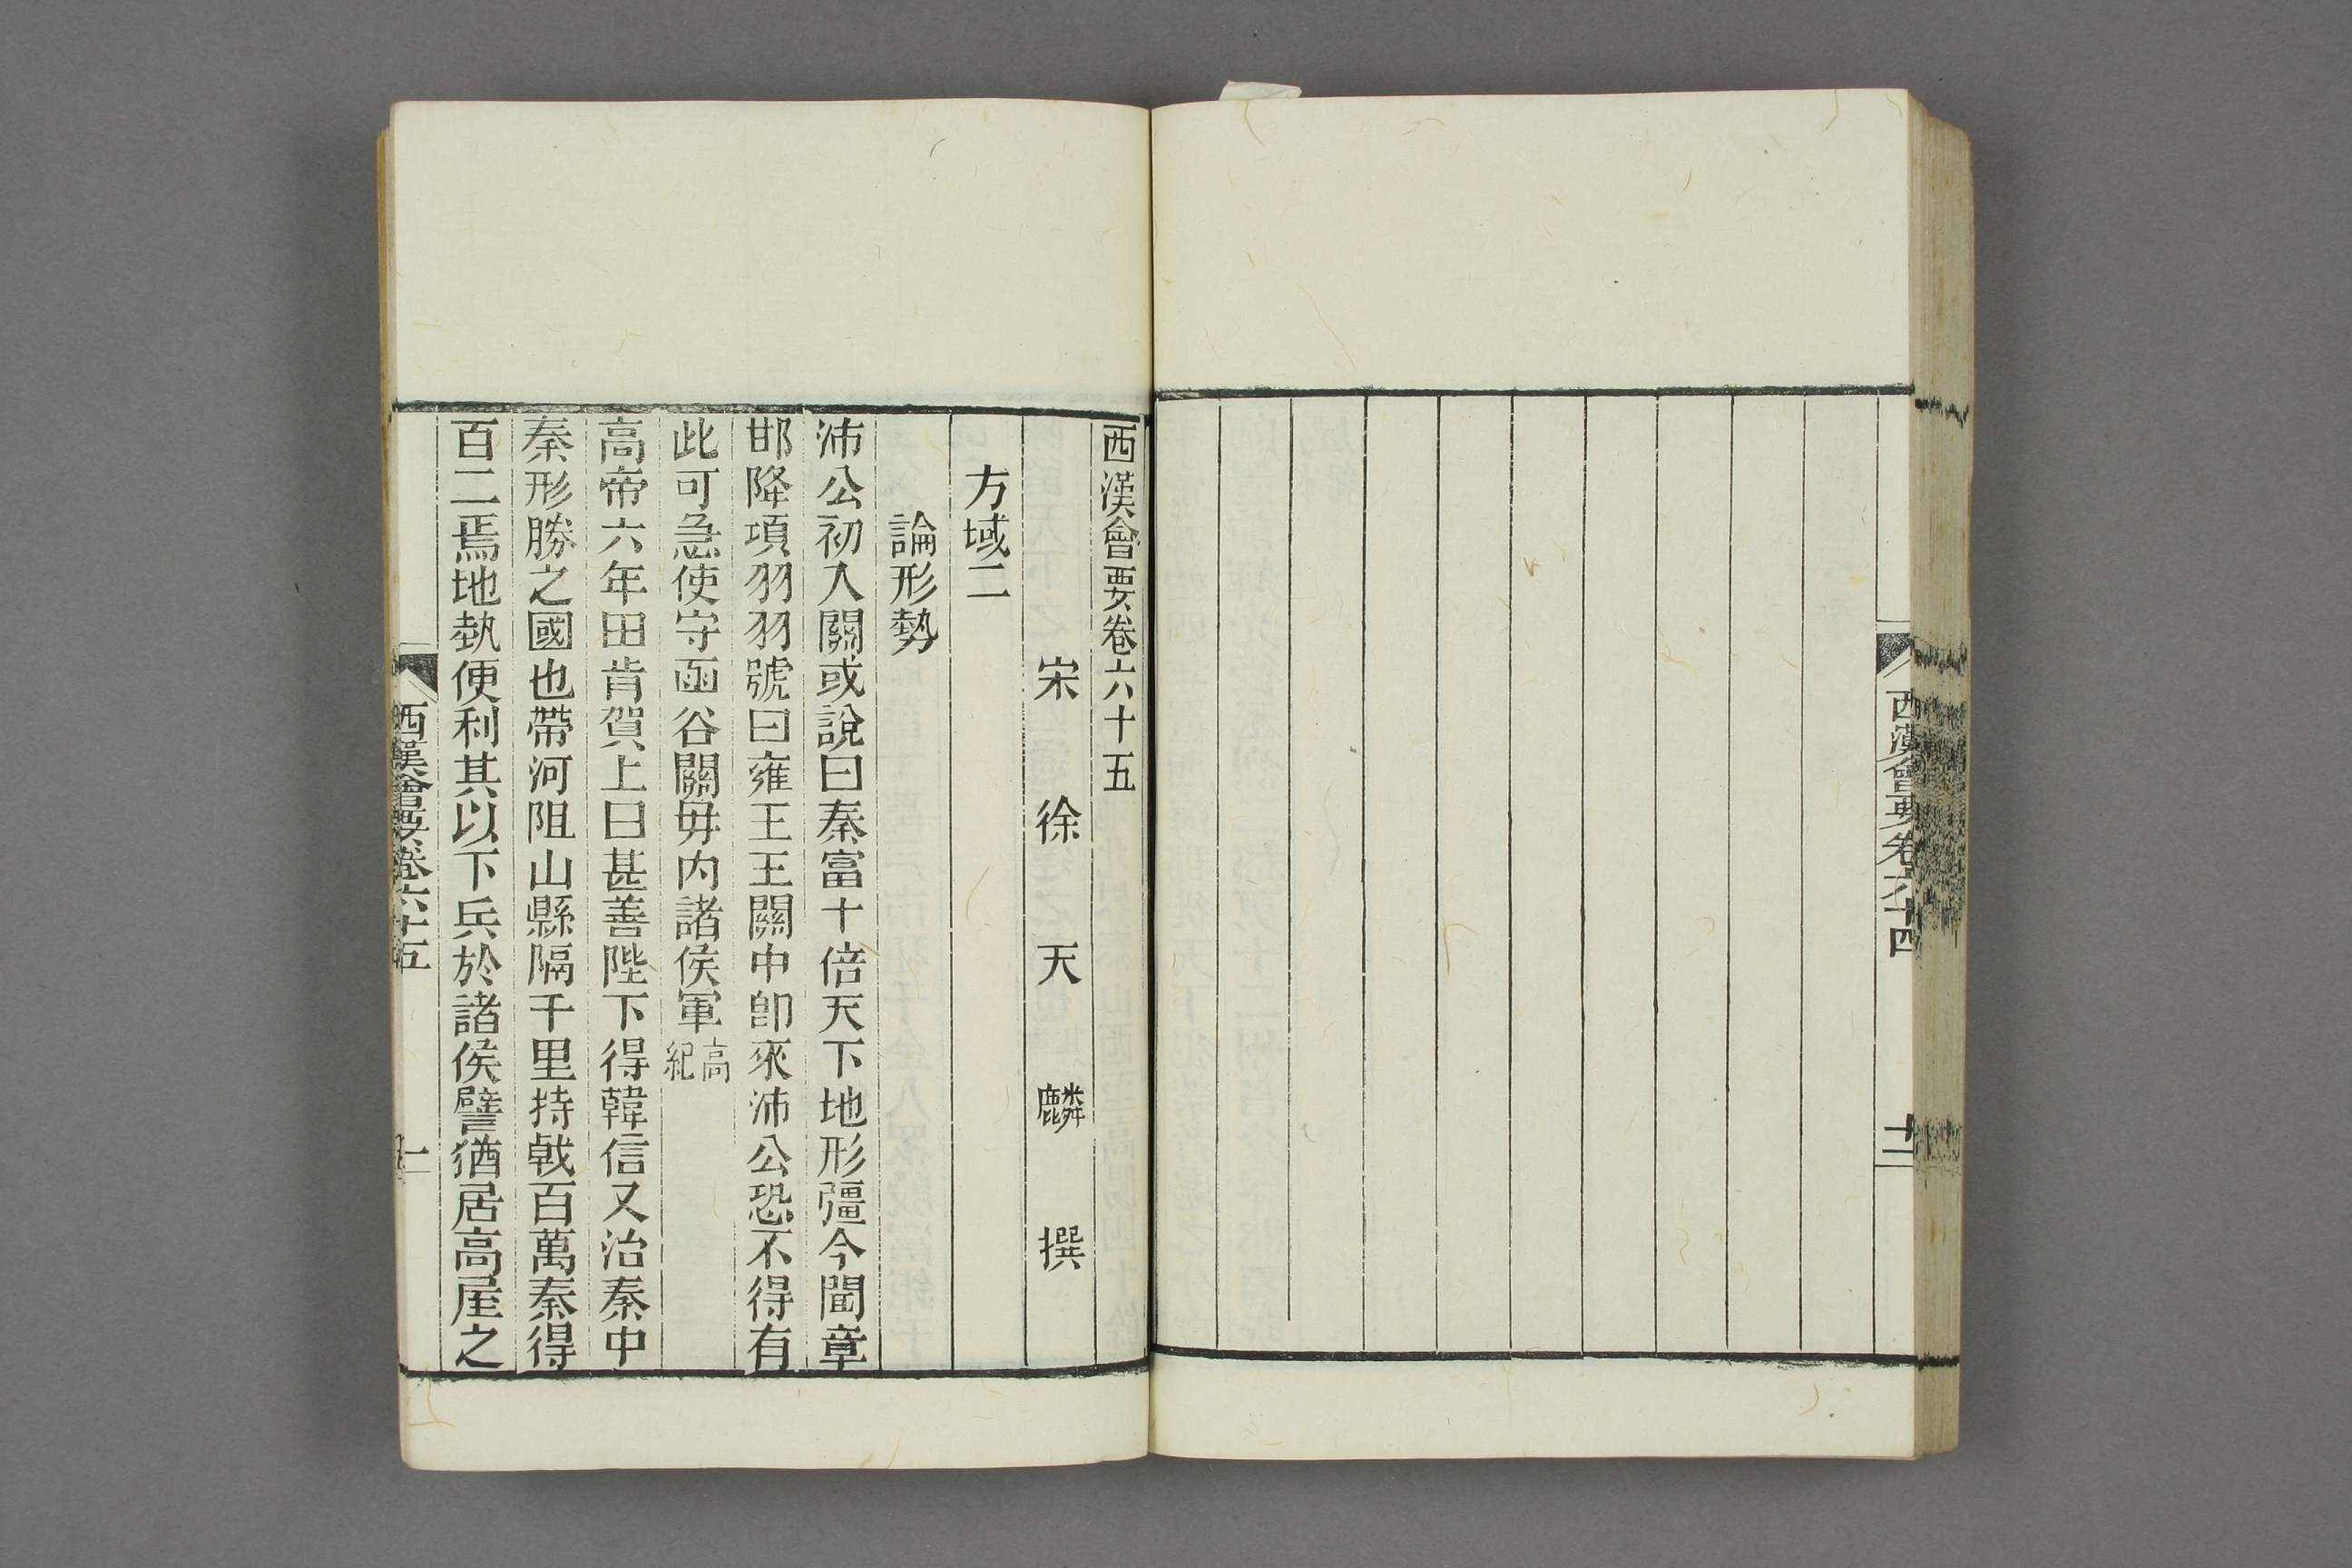 西漢會要卷六十四
十二
西漢會要卷六十五
宋徐天麟撰
方域二
論形勢
沛公初入關或說曰秦富十倍天下地形彊今聞章
邯降項羽羽號曰雍王王關中卽來沛公恐不得有
此可急使守函谷關毋内諸侯軍高紀
高帝六年田肯賀上曰甚善陛下得韓信又治秦中
秦形勝之國也帶河阻山縣隔千里持戟百萬秦得
百二焉地埶便利其以下兵於諸侯譬猶居高屋之
西漢會要卷六十五
一